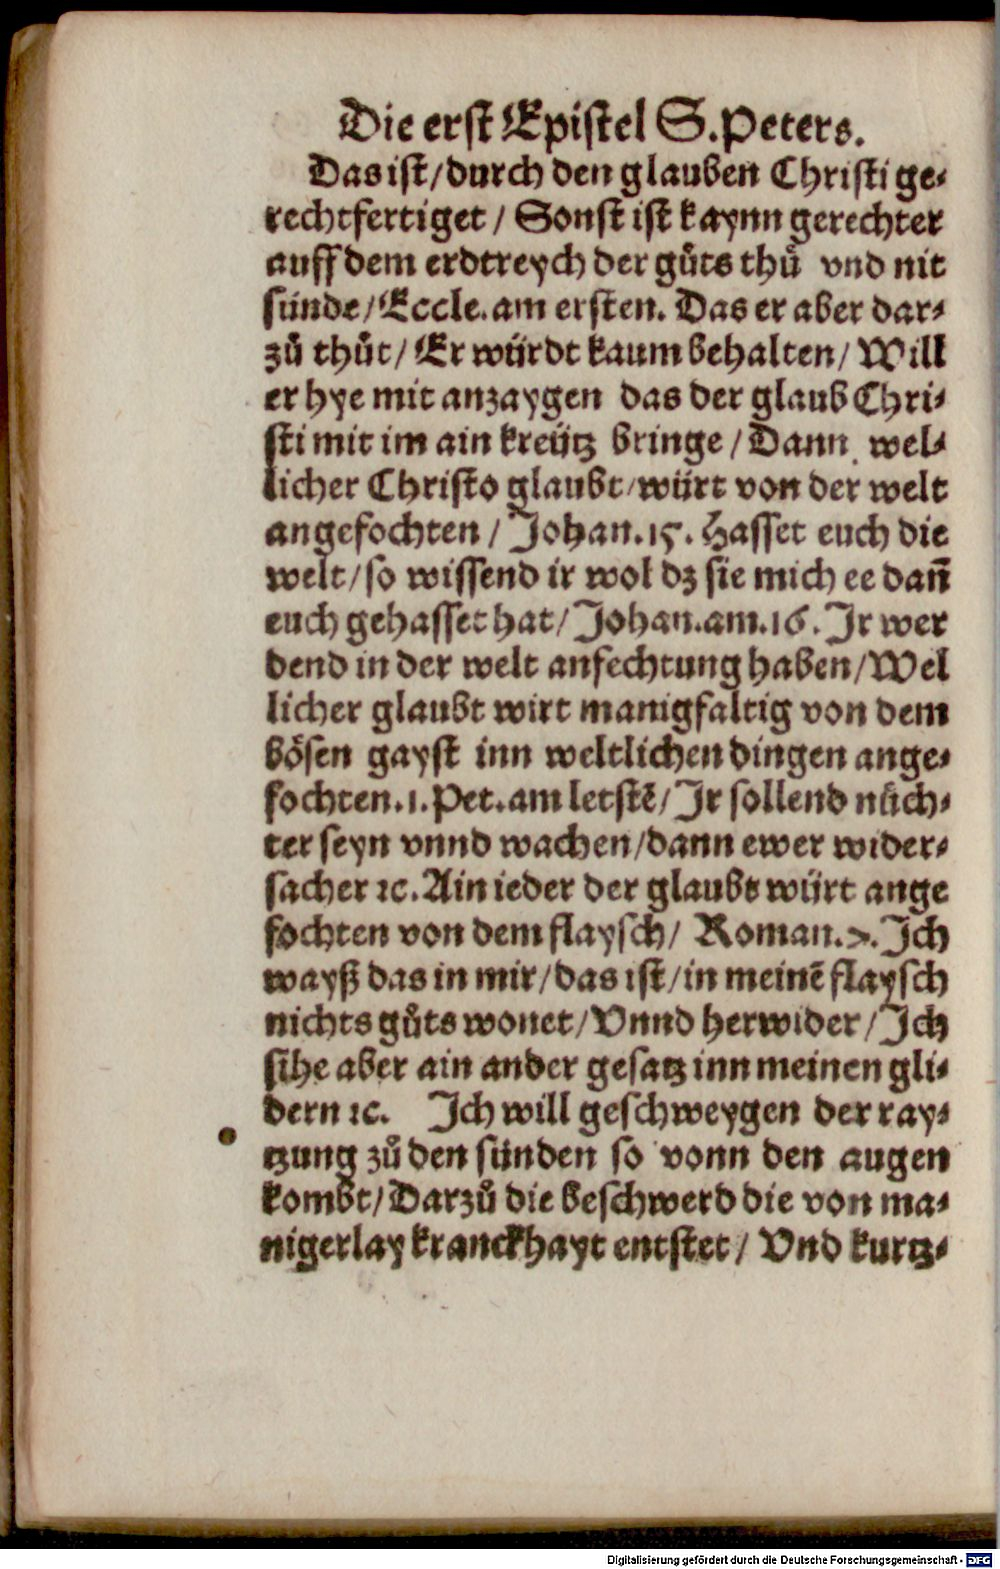 Die erst Epistel S. Peters.
Das ist / durch den glauben Christi ge⸗
rechtfertiget / Sonst ist kaynn gerechter
auff dem erdtreych der gůts thů vnd nit
sünde / Eccle. am ersten. Das er aber dar⸗
zů thůt / Er würdt kaum behalten / Will
er hye mit anzaygen das der glaub Chri⸗
sti mit im ain kreütz bringe / Dann wel⸗
licher Christo glaubt / würt von der welt
angefochten / Johan. 15. Hasset euch die
welt / so wissend ir wol dz sie mich ee dañ
euch gehasset hat / Johan. am. 16. Jr wer
dend in der welt anfechtung haben / Wel
licher glaubt wirt manigfaltig von dem
bösen gayst inn weltlichen dingen ange⸗
fochten. 1. Pet. am letstē / Jr sollend nüch⸗
ter seyn vnnd wachen / dann ewer wider⸗
sacher ꝛc. Ain ieder der glaubt würt ange
fochten von dem flaysch / Roman. 7. Jch
wayß das in mir / das ist / in meinē flaysch
nichts gůts wonet / Vnnd herwider / Jch
sihe aber ain ander gesatz inn meinen gli⸗
dern ꝛc. Jch will geschweygen der ray⸗
tzung zů den sünden so vonn den augen
kombt / Darzů die beschwerd die von ma⸗
nigerlay kranckhayt entstet / Vnd kurtz⸗
Digitalisierung gefördert durch die Deutsche Forschungsgemeinschaft - DFG